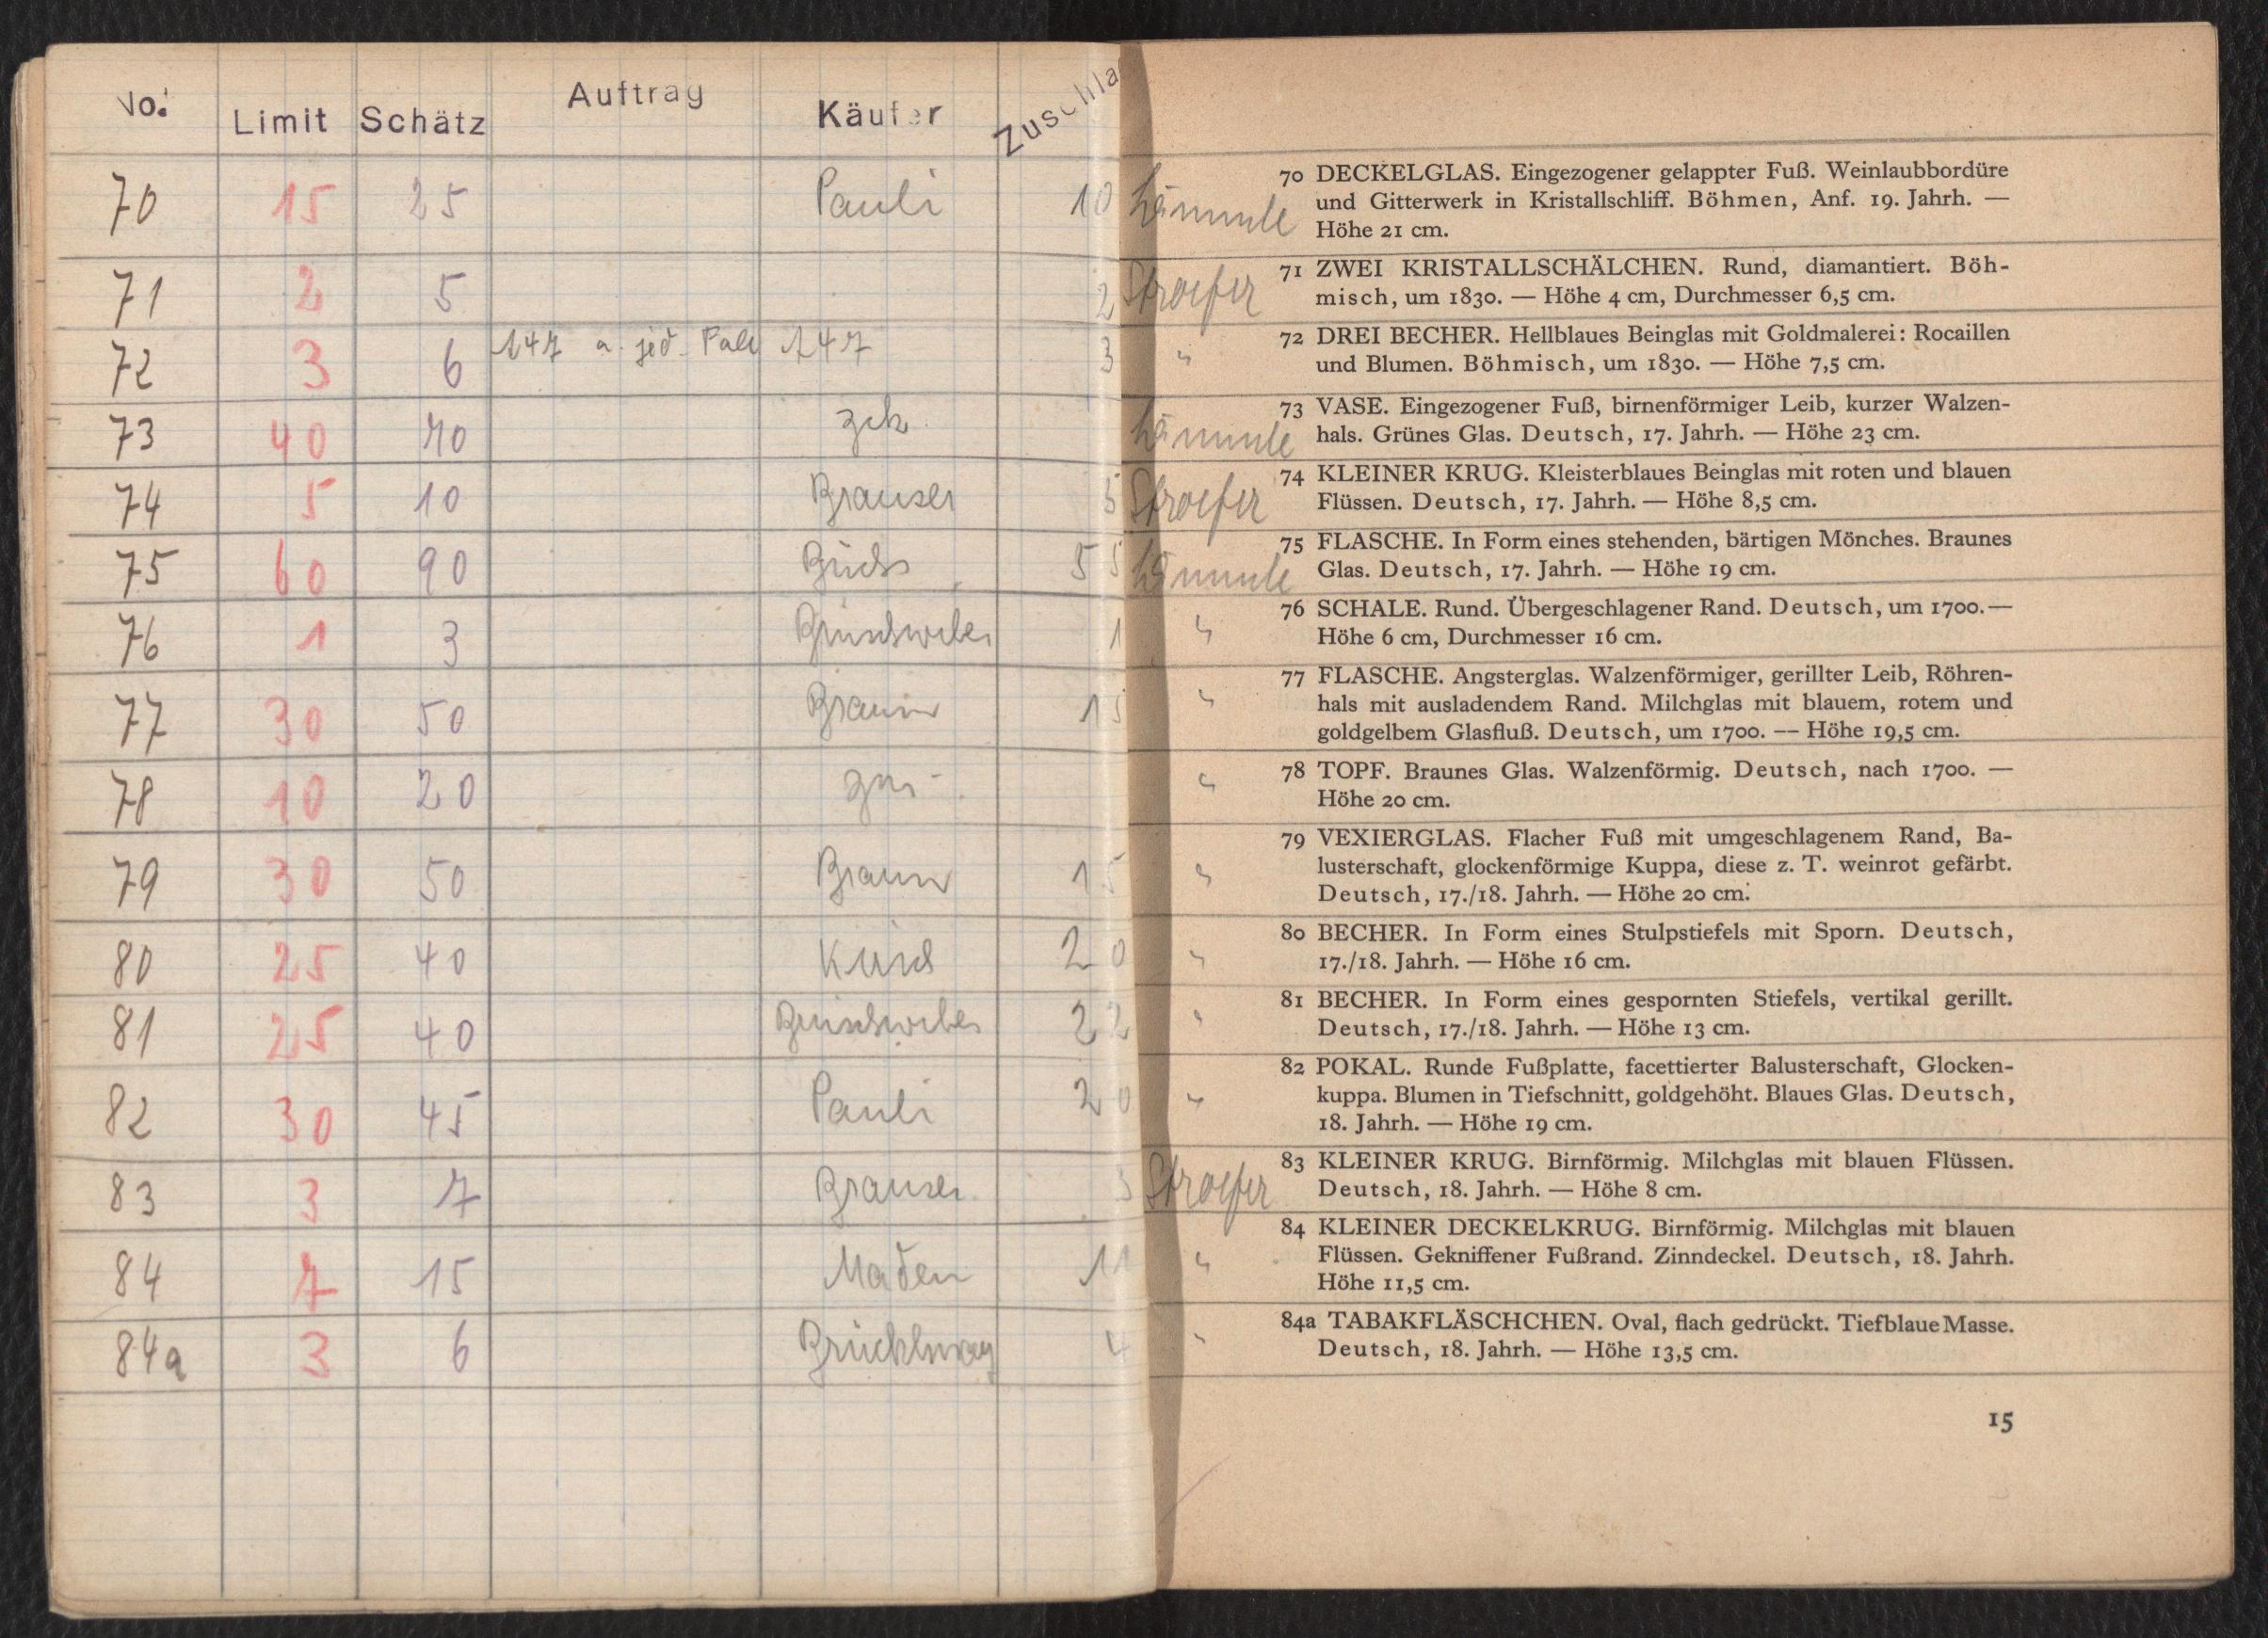 No. Limit Schätz Auftrag Käufer Zuschla
70 15 25 Pauli 10
71 2 5 2
72 3 6 147 a. jed. Fall 147 3
73 40 70
74 5 10 Brauser 5
75 60 90 55
76 1 3 1
77 30 50 Braun 15
78 10 20
79 30 50 Braun 15
80 25 40 20
81 25 40 22
82 30 45 Pauli 20
83 3 7 Brauser 3
84 7 15 Maden 11
84a 3 6 4
Lämmle 70 DECKELGLAS. Eingezogener gelappter Fuß. Weinlaubbordüre
und Gitterwerk in Kristallschliff. Böhmen, Anf. 19. Jahrh. —
Höhe 21 cm.
Stroefer 71 ZWEI KRISTALLSCHÄLCHEN. Rund, diamantiert. Böh-
misch, um 1830. — Höhe 4 cm, Durchmesser 6,5 cm.
" 72 DREI BECHER. Hellblaues Beinglas mit Goldmalerei: Rocaillen
und Blumen. Böhmisch, um 1830. — Höhe 7,5 cm.
Lämmle 73 VASE. Eingezogener Fuß, birnenförmiger Leib, kurzer Walzen-
hals. Grünes Glas. Deutsch, 17. Jahrh. — Höhe 23 cm.
Stroefer 74 KLEINER KRUG. Kleisterblaues Beinglas mit roten und blauen
Flüssen. Deutsch, 17. Jahrh. — Höhe 8,5 cm.
Lämmle 75 FLASCHE. In Form eines stehenden, bärtigen Mönches. Braunes
Glas. Deutsch, 17. Jahrh. — Höhe 19 cm.
" 76 SCHALE. Rund. Übergeschlagener Rand. Deutsch, um 1700. —
Höhe 6 cm, Durchmesser 16 cm.
" 77 FLASCHE. Angsterglas. Walzenförmiger, gerillter Leib, Röhren-
hals mit ausladendem Rand. Milchglas mit blauem, rotem und
goldgelbem Glasfluß. Deutsch, um 1700. — Höhe 19,5 cm.
" 78 TOPF. Braunes Glas. Walzenförmig. Deutsch, nach 1700. —
Höhe 20 cm.
" 79 VEXIERGLAS. Flacher Fuß mit umgeschlagenem Rand, Ba-
lusterschaft, glockenförmige Kuppa, diese z. T. weinrot gefärbt.
Deutsch, 17./18. Jahrh. — Höhe 20 cm.
" 80 BECHER. In Form eines Stulpstiefels mit Sporn. Deutsch,
17./18. Jahrh. — Höhe 16 cm.
" 81 BECHER. In Form eines gespornten Stiefels, vertikal gerillt.
Deutsch, 17./18. Jahrh. — Höhe 13 cm.
" 82 POKAL. Runde Fußplatte, facettierter Balusterschaft, Glocken-
kuppa. Blumen in Tiefschnitt, goldgehöht. Blaues Glas. Deutsch,
18. Jahrh. — Höhe 19 cm.
Stroefer 83 KLEINER KRUG. Birnförmig. Milchglas mit blauen Flüssen.
Deutsch, 18. Jahrh. — Höhe 8 cm.
" 84 KLEINER DECKELKRUG. Birnförmig. Milchglas mit blauen
Flüssen. Gekniffener Fußrand. Zinndeckel. Deutsch, 18. Jahrh.
Höhe 11,5 cm.
" 84a TABAKFLÄSCHCHEN. Oval, flach gedrückt. Tiefblaue Masse.
Deutsch, 18. Jahrh. — Höhe 13,5 cm.
15